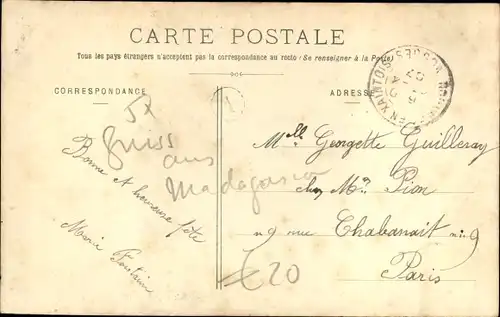 CARTE POSTALE
Tous les pays étrangers n'acceptent pas la correspondance au recto (Se renseigner à la Poste)
CORRESPONDANCE
ADRESSE
EN XAINTOIS VOSGES
57
Gruss
aus
Madagascar
Bonne et heureuse fête
Marie
Mlle Georgette Guilleray
chez Mr Pion
n 9 rue Chabanait n 9
Paris
€ 20